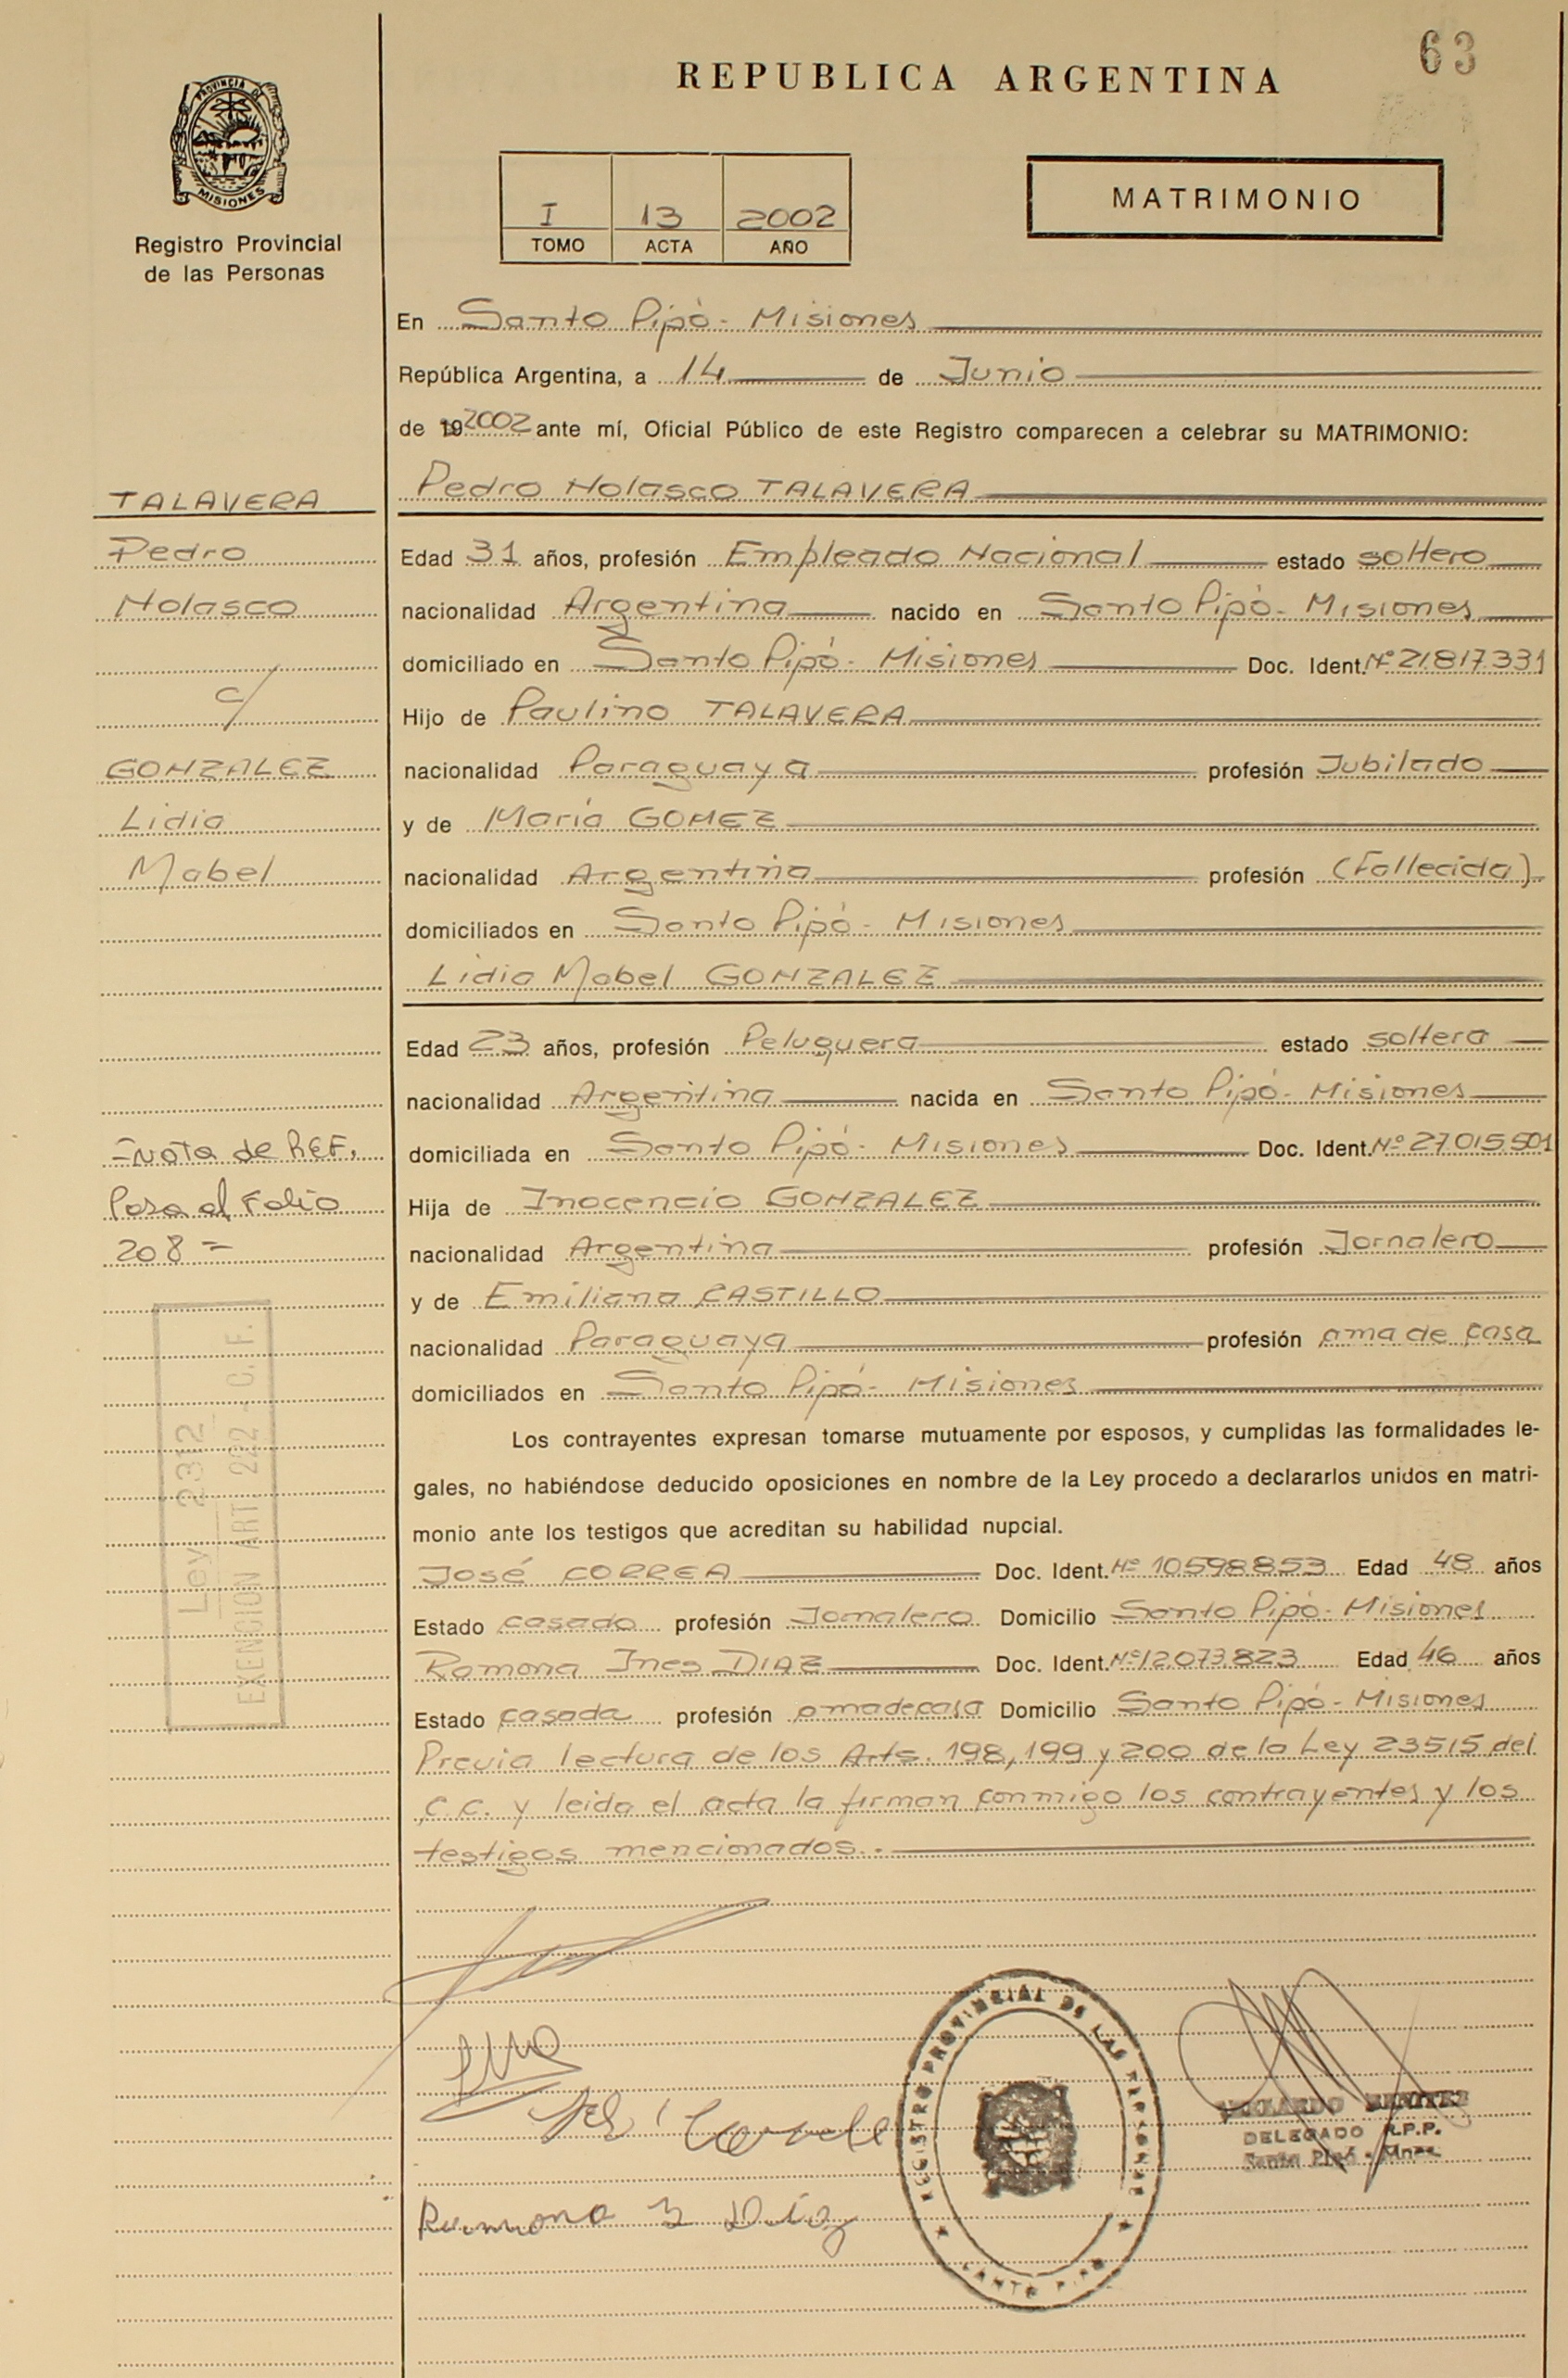 63
REPUBLICA ARGENTINA
PROVINCIA DE
MISIONES
Registro Provincial
de las Personas
I 13 2002
TOMO ACTA AÑO
MATRIMONIO
En Santo Pipó - Misiones
República Argentina, a 14 de Junio
de 19 2002 ante mí, Oficial Público de este Registro comparecen a celebrar su MATRIMONIO:
Pedro Nolasco TALAVERA
Edad 31 años, profesión Empleado Nacional estado soltero
nacionalidad Argentina nacido en Santo Pipó - Misiones
domiciliado en Santo Pipó - Misiones Doc. Ident. Nº 21.817.331
Hijo de Paulino TALAVERA
nacionalidad Paraguaya profesión Jubilado
y de María GOMEZ
nacionalidad Argentina profesión (Fallecida)
domiciliados en Santo Pipó - Misiones
Lidia Mabel GONZALEZ
Edad 23 años, profesión Peluquera estado soltera
nacionalidad Argentina nacida en Santo Pipó - Misiones
domiciliada en Santo Pipó - Misiones Doc. Ident. Nº 27.015.501
Hija de Inocencio GONZALEZ
nacionalidad Argentina profesión Jornalero
y de Emiliana CASTILLO
nacionalidad Paraguaya profesión ama de casa
domiciliados en Santo Pipó - Misiones
Los contrayentes expresan tomarse mutuamente por esposos, y cumplidas las formalidades le-
gales, no habiéndose deducido oposiciones en nombre de la Ley procedo a declararlos unidos en matri-
monio ante los testigos que acreditan su habilidad nupcial.
José CORREA Doc. Ident. Nº 10.598.853 Edad 48 años
Estado casado profesión Jornalero Domicilio Santo Pipó - Misiones
Ramona Ines DIAZ Doc. Ident. Nº 12.073.823 Edad 46 años
Estado casada profesión ama de casa Domicilio Santo Pipó - Misiones
Previa lectura de los Arts. 198, 199 y 200 de la Ley 23515 del
C.C. y leida el acta la firman conmigo los contrayentes y los
testigos mencionados.
TALAVERA
Pedro
Nolasco
c/
GONZALEZ
Lidia
Mabel
- Nota de REF.
Pasa al Folio
208 =
Ley 2312
EXENCION ART. 222 - C. F.
Ramona I Díaz
REGISTRO PROVINCIAL DE LAS PERSONAS
SANTO PIPO
BENITEZ
DELEGADO R.P.P.
Santo Pipó - Mnes.